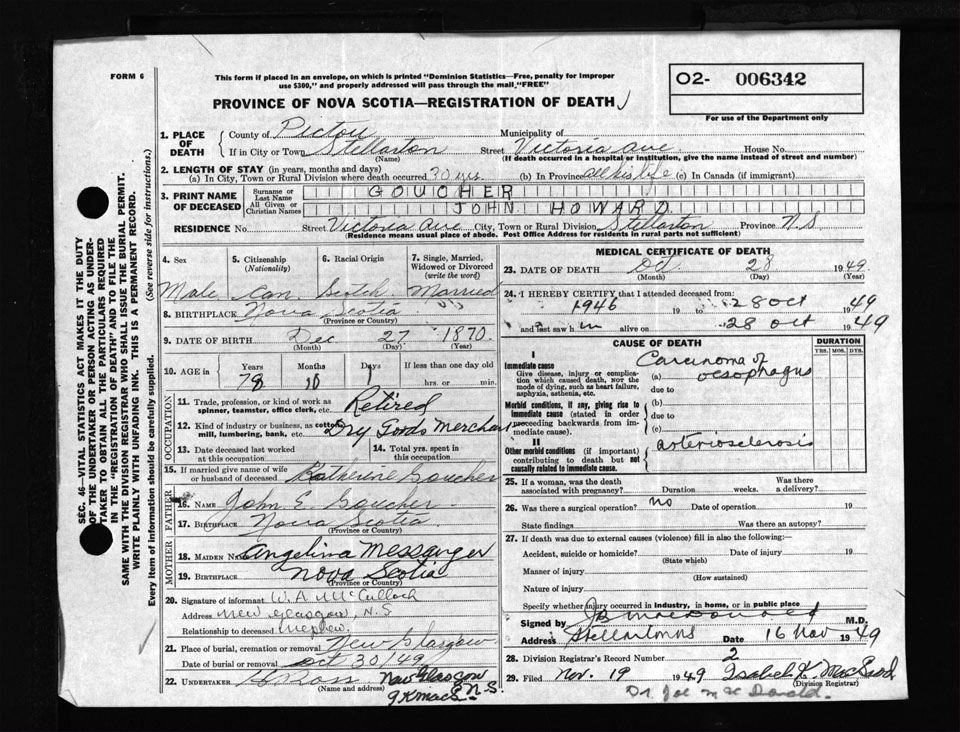 FORM 6
This form if placed in an envelope, on which is printed "Dominion Statistics—Free, penalty for improper
use $300," and properly addressed will pass through the mail, "FREE"
O2- 006342
For use of the Department only
PROVINCE OF NOVA SCOTIA—REGISTRATION OF DEATH
1. PLACE OF DEATH County of Pictou Municipality of
If in City or Town Stellarton Street Victoria Ave House No.
(Name) (If death occurred in a hospital or institution, give the name instead of street and number)
2. LENGTH OF STAY (in years, months and days)
(a) In City, Town or Rural Division where death occurred 30 yrs. (b) In Province all his life (c) In Canada (if immigrant)
3. PRINT NAME OF DECEASED Surname or Last Name GOUCHER
All Given or Christian Names JOHN HOWARD
RESIDENCE No. Street Victoria Ave City, Town or Rural Division Stellarton Province N.S
(Residence means usual place of abode. Post Office Address for residents in rural parts not sufficient)
4. Sex 5. Citizenship (Nationality) 6. Racial Origin 7. Single, Married, Widowed or Divorced (write the word)
Male Can. Scotch Married
8. BIRTHPLACE Nova Scotia
(Province or Country)
9. DATE OF BIRTH Dec 27 1870
(Month) (Day) (Year)
10. AGE in Years Months Days If less than one day old
78 10 1 hrs. or min.
OCCUPATION
11. Trade, profession, or kind of work as
spinner, teamster, office clerk, etc. Retired
12. Kind of industry or business, as cotton
mill, lumbering, bank, etc. Dry Goods Merchant
13. Date deceased last worked at this occupation 14. Total yrs. spent in this occupation
15. If married give name of wife
or husband of deceased Katherine Goucher
FATHER
16. NAME John E. Goucher
17. BIRTHPLACE Nova Scotia
(Province or Country)
MOTHER
18. MAIDEN NAME Angelina Messanger
19. BIRTHPLACE Nova Scotia
(Province or Country)
20. Signature of informant W. A. McCulloch
Address New Glasgow, N.S
Relationship to deceased Nephew
21. Place of burial, cremation or removal New Glasgow
Date of burial or removal Oct 30/49
22. UNDERTAKER H Ross New Glasgow
(Name and address) N.S.
MEDICAL CERTIFICATE OF DEATH
23. DATE OF DEATH Oct. 28 1949
(Month) (Day) (Year)
24. I HEREBY CERTIFY that I attended deceased from
1946 19 to 28 Oct 1949
and last saw him alive on 28 Oct 1949
CAUSE OF DEATH DURATION
YRS. MOS. DYS.
I
Immediate cause
Give disease, injury or complication which caused death, NOT the mode of dying, such as heart failure, asphyxia, asthenia, etc.
(a) Carcinoma of oesophagus
due to
Morbid conditions, if any, giving rise to immediate cause (stated in order proceeding backwards from immediate cause).
(b)
due to
(c)
II
Other morbid conditions (if important) contributing to death but not causally related to immediate cause.
arteriosclerosis
25. If a woman, was the death associated with pregnancy? Duration weeks. Was there a delivery?
26. Was there a surgical operation? no Date of operation 19
State findings Was there an autopsy?
27. If death was due to external causes (violence) fill in also the following:—
Accident, suicide or homicide? Date of injury 19
(State which)
Manner of injury
(How sustained)
Nature of injury
Specify whether injury occurred in industry, in home, or in public place
Signed by JB MacDonald M.D.
Address Stellarton NS Date 16 Nov 1949
28. Division Registrar's Record Number 2
29. Filed Nov. 19 1949 Isabel K. MacLeod
(Division Registrar)
Dr. Joe McDonald.
SEC. 46—VITAL STATISTICS ACT MAKES IT THE DUTY
OF THE UNDERTAKER OR PERSON ACTING AS UNDER-
TAKER TO OBTAIN ALL THE PARTICULARS REQUIRED
IN THE "REGISTRATION OF DEATH" AND TO FILE THE
SAME WITH THE DIVISION REGISTRAR WHO SHALL ISSUE THE BURIAL PERMIT.
WRITE PLAINLY WITH UNFADING INK. THIS IS A PERMANENT RECORD.
Every item of information should be carefully supplied. (See reverse side for instructions.)